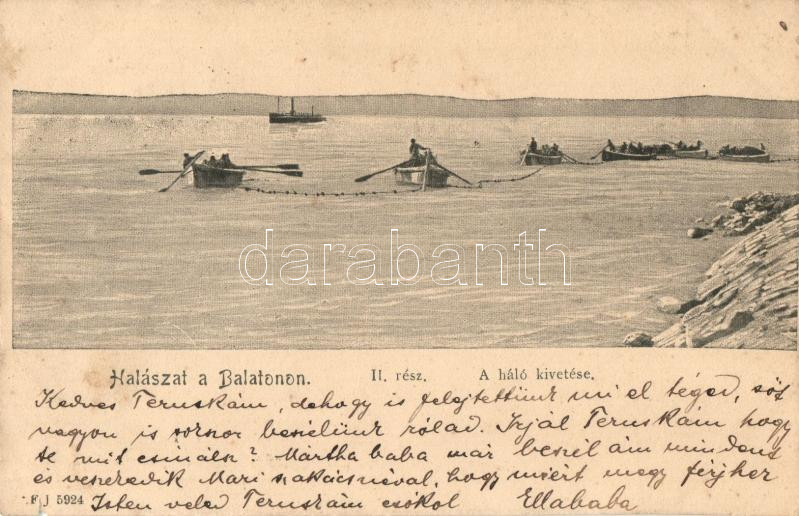 darabanth
Halászat a Balatonon. II. rész. A háló kivetése.
Kedves Teruskám, dehogy is felejtettünk mi el téged, sőt
nagyon is sokszor beszélünk rólad. Írjál Teruskám hogy
te mit csinálsz? Mártha baba már beszél ám mindent
és veszekedik Mari szakácsnéval, hogy miért megy férjhez
F J 5924 Isten veled Teruskám csókol Ellababa